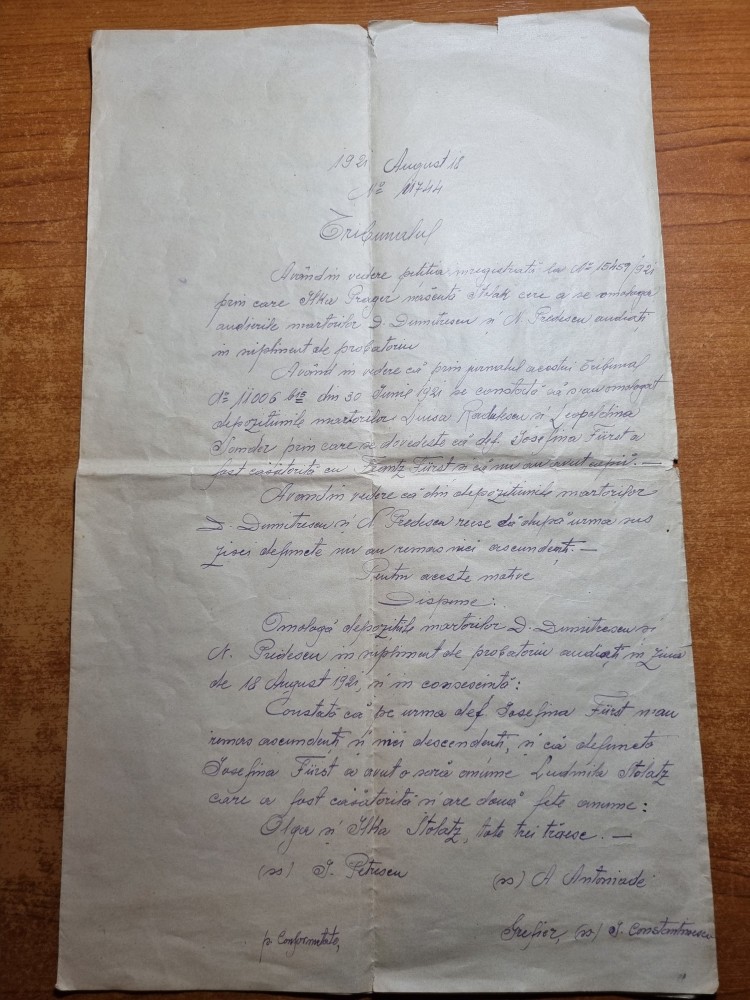 1921 August 18
No 11744
Tribunalul
Având in vedere petitia inregistrată la No 15459/921
prin care Ilka Prager născută cere a se omologa
audierile martorilor D. Dumitrescu si N. Predescu audiati
in supliment de probatoriu
Având in vedere că prin jurnalul acestui Tribunal
No 11006 bis din 30 Iunie 1921 se constată că s'au omologat
depozitiunile martorilor Luisa si Leopoldina
prin care se dovedeste că def. Iosefina Fürst a
fost căsătorită cu Frantz Fürst si că nu au avut copii. —
Avand in vedere că din depozitiunile martorilor
D. Dumitrescu si N Predescu reese că după urma sus
zisei defuncte nu au rămas nici ascendenti. —
Pentru aceste motive
Dispune:
Omologă depozitiile martorilor D. Dumitrescu si
N. Predescu in supliment de probatoriu audiati in ziua
de 18 August 1921, si in consecintă:
Constată că pe urma def. Iosefina Fürst n-au
rămas ascendenti si nici descendenti, si că defuncta
Iosefina Fürst a avut o soră anume Ludmila Stolatz
care a fost căsătorită si are două fete anume:
Olga si Ilka Stolatz, tote trei trăesc. —
(ss) I. Petrescu (ss) A Antoniade
p. Conformitate, Grefier, (ss) I. Constantinescu